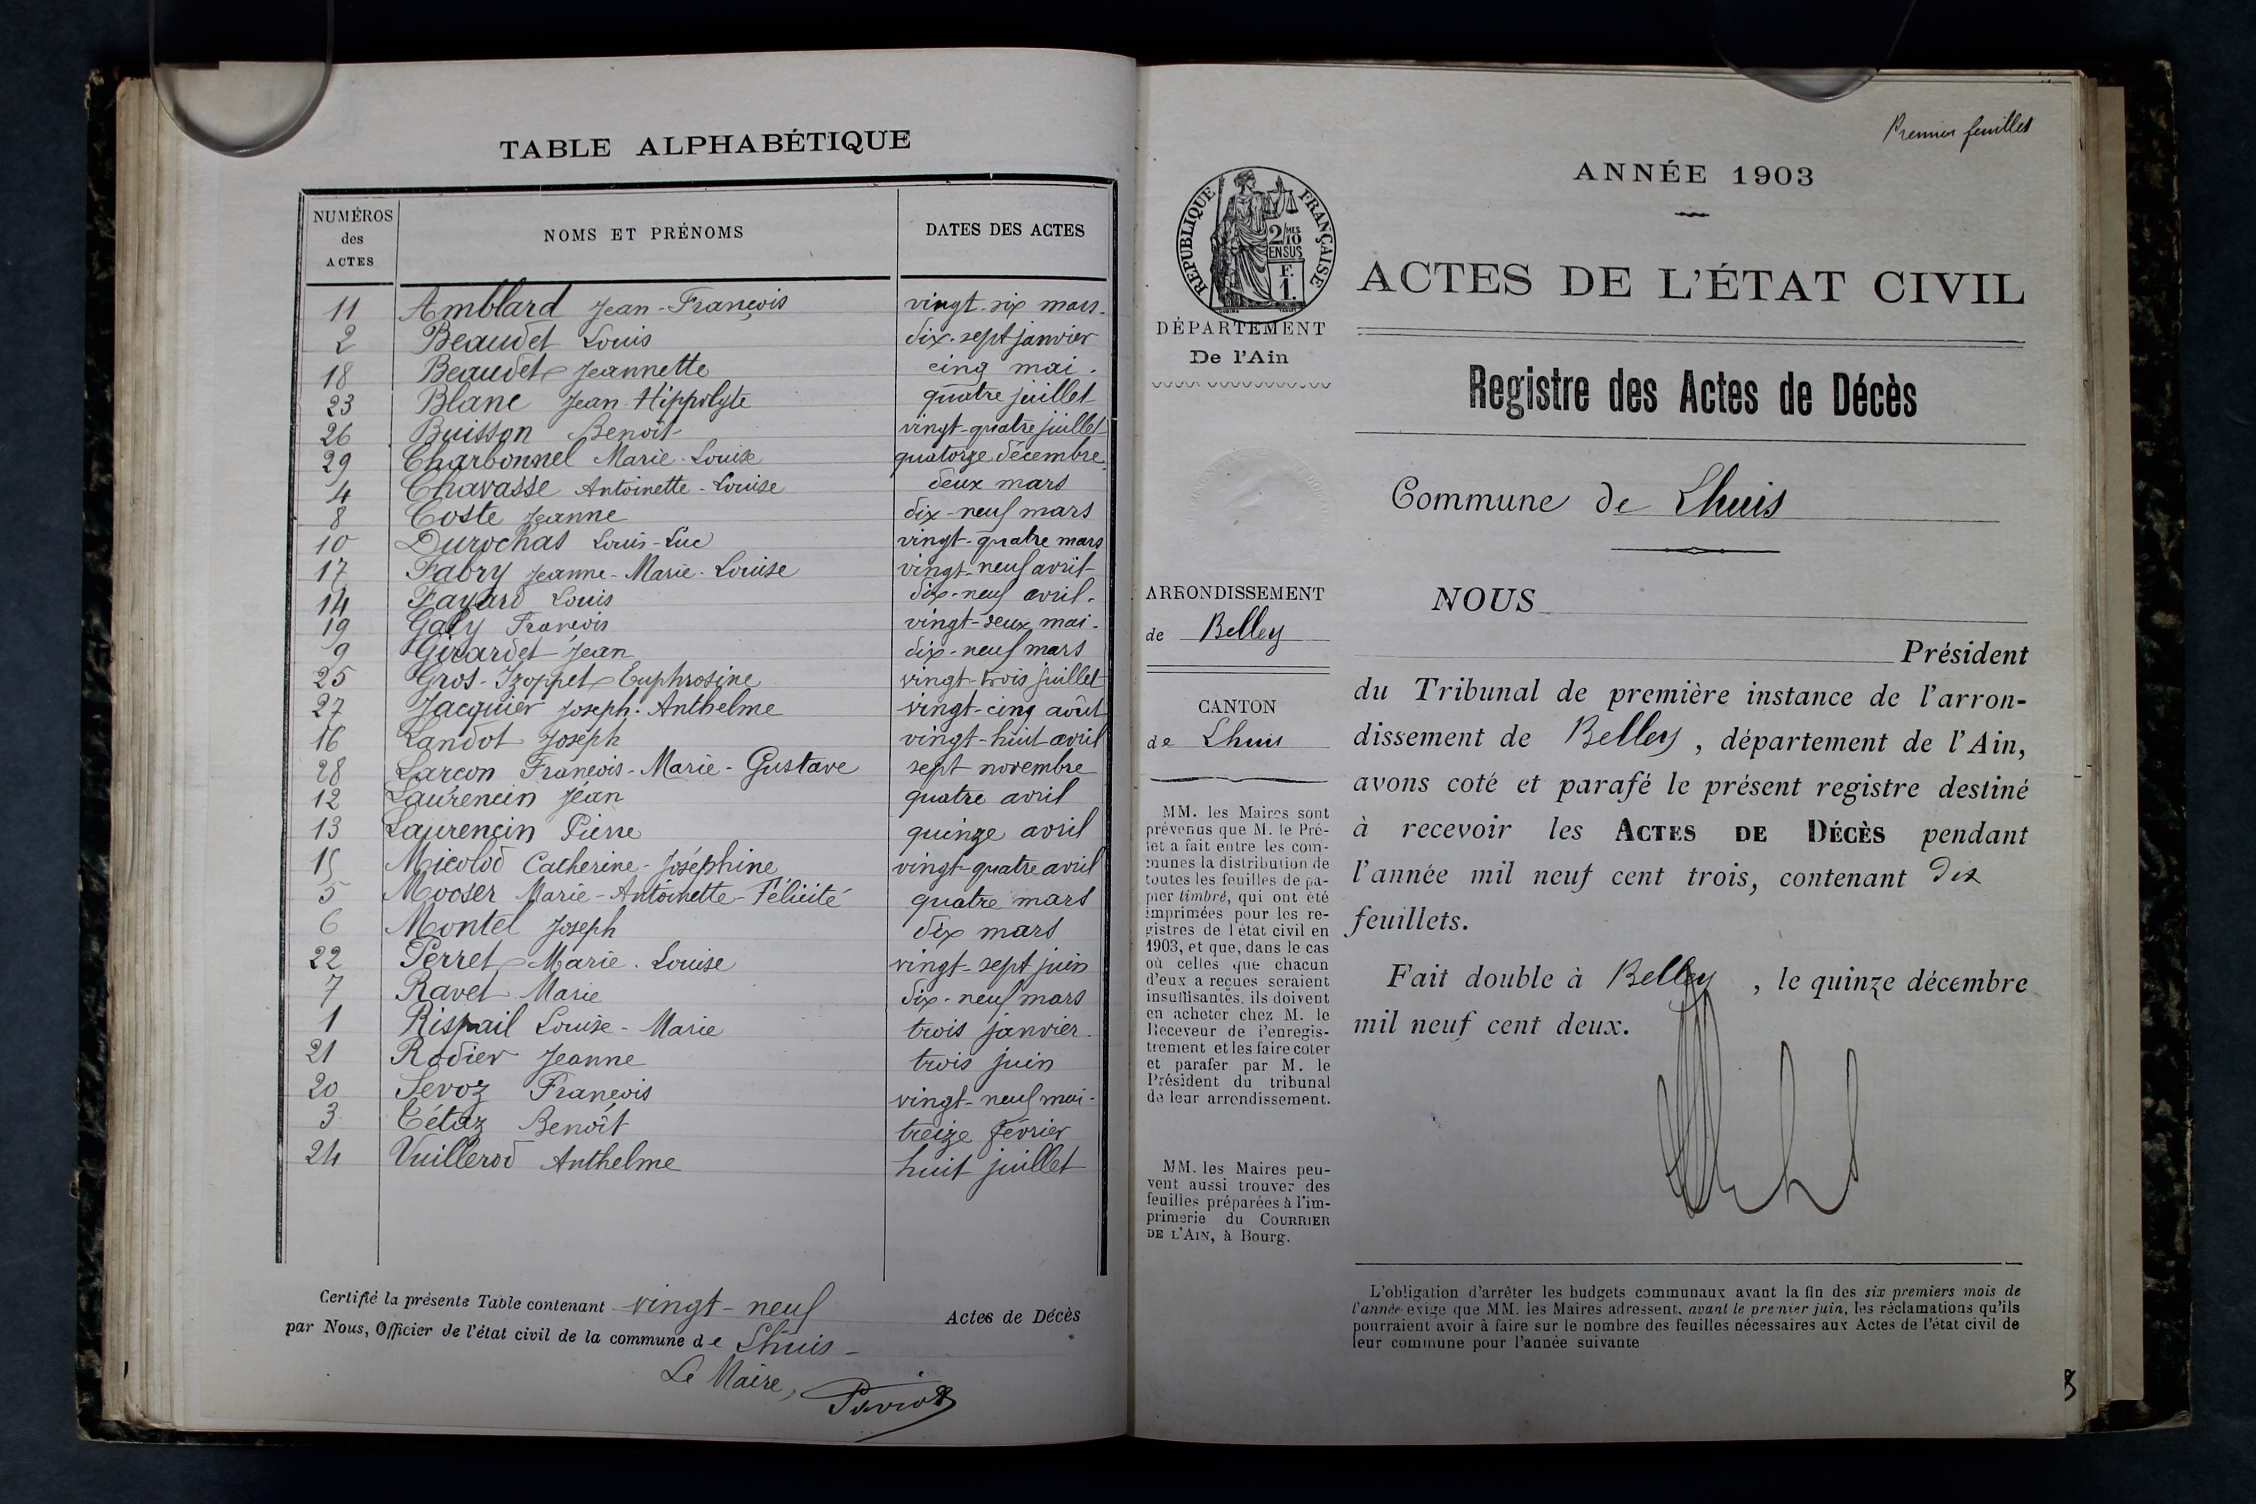 TABLE ALPHABÉTIQUE
NUMÉROS des ACTES | NOMS ET PRÉNOMS | DATES DES ACTES
11 Amblard Jean-François vingt-six mars.
2 Beaudet Louis dix-sept janvier
18 Beaudet Jeannette cinq mai.
23 Blanc Jean-Hippolyte quatre juillet
26 Buisson Benoît vingt-quatre juillet
29 Charbonnel Marie-Louise quatorze décembre
4 Chavasse Antoinette-Louise deux mars
8 Coste Jeanne dix-neuf mars
10 Durochat Louis-Luc vingt-quatre mars
17 Fabry Jeanne-Marie-Louise vingt-neuf avril
14 Fayard Louis dix-neuf avril.
19 Galy François vingt-deux mai.
9 Girardet Jean dix-neuf mars
25 Gros-Izoppet Euphrosine vingt-trois juillet
27 Jacquier Joseph-Anthelme vingt-cinq août
16 Landot Joseph vingt-huit avril
28 Larçon François-Marie-Gustave sept novembre
12 Laurencin Jean quatre avril
13 Laurencin Pierre quinze avril
15 Micolod Catherine-Joséphine vingt-quatre avril
5 Mooser Marie-Antoinette-Félicité quatre mars
6 Montel Joseph dix mars
22 Perret Marie-Louise vingt-sept juin
7 Ravet Marie dix-neuf mars
1 Rispail Louise-Marie trois janvier
21 Rodier Jeanne trois juin
20 Sevoz François vingt-neuf mai-
3 Tétaz Benoît treize février
24 Vuillerod Anthelme huit juillet
Certifié la présente Table contenant vingt-neuf Actes de Décès
par Nous, Officier de l'état civil de la commune de Lhuis-
Le Maire,
Premier feuillet
RÉPUBLIQUE FRANÇAISE
2/10 MES
EN SUS
F.
1.
DÉPARTEMENT
De l'Ain
ARRONDISSEMENT
de Belley
CANTON
de Lhuis
MM. les Maires sont
prévenus que M. le Pré-
fet a fait entre les com-
munes la distribution de
toutes les feuilles de pa-
pier timbré, qui ont été
imprimées pour les re-
gistres de l'état civil en
1903, et que, dans le cas
où celles que chacun
d'eux a reçues seraient
insuffisantes, ils doivent
en acheter chez M. le
Receveur de l'enregis-
trement et les faire coter
et parafer par M. le
Président du tribunal
de leur arrondissement.
MM. les Maires peu-
vent aussi trouver des
feuilles préparées à l'im-
primerie du COURRIER
DE L'AIN, à Bourg.
ANNÉE 1903
ACTES DE L'ÉTAT CIVIL
Registre des Actes de Décès
Commune de Lhuis
NOUS
Président
du Tribunal de première instance de l'arron-
dissement de Belley, département de l'Ain,
avons coté et parafé le présent registre destiné
à recevoir les ACTES DE DÉCÈS pendant
l'année mil neuf cent trois, contenant dix
feuillets.
Fait double à Belley, le quinze décembre
mil neuf cent deux.
L'obligation d'arrêter les budgets communaux avant la fin des six premiers mois de
l'année exige que MM. les Maires adressent, avant le premier juin, les réclamations qu'ils
pourraient avoir à faire sur le nombre des feuilles nécessaires aux Actes de l'état civil de
leur commune pour l'année suivante